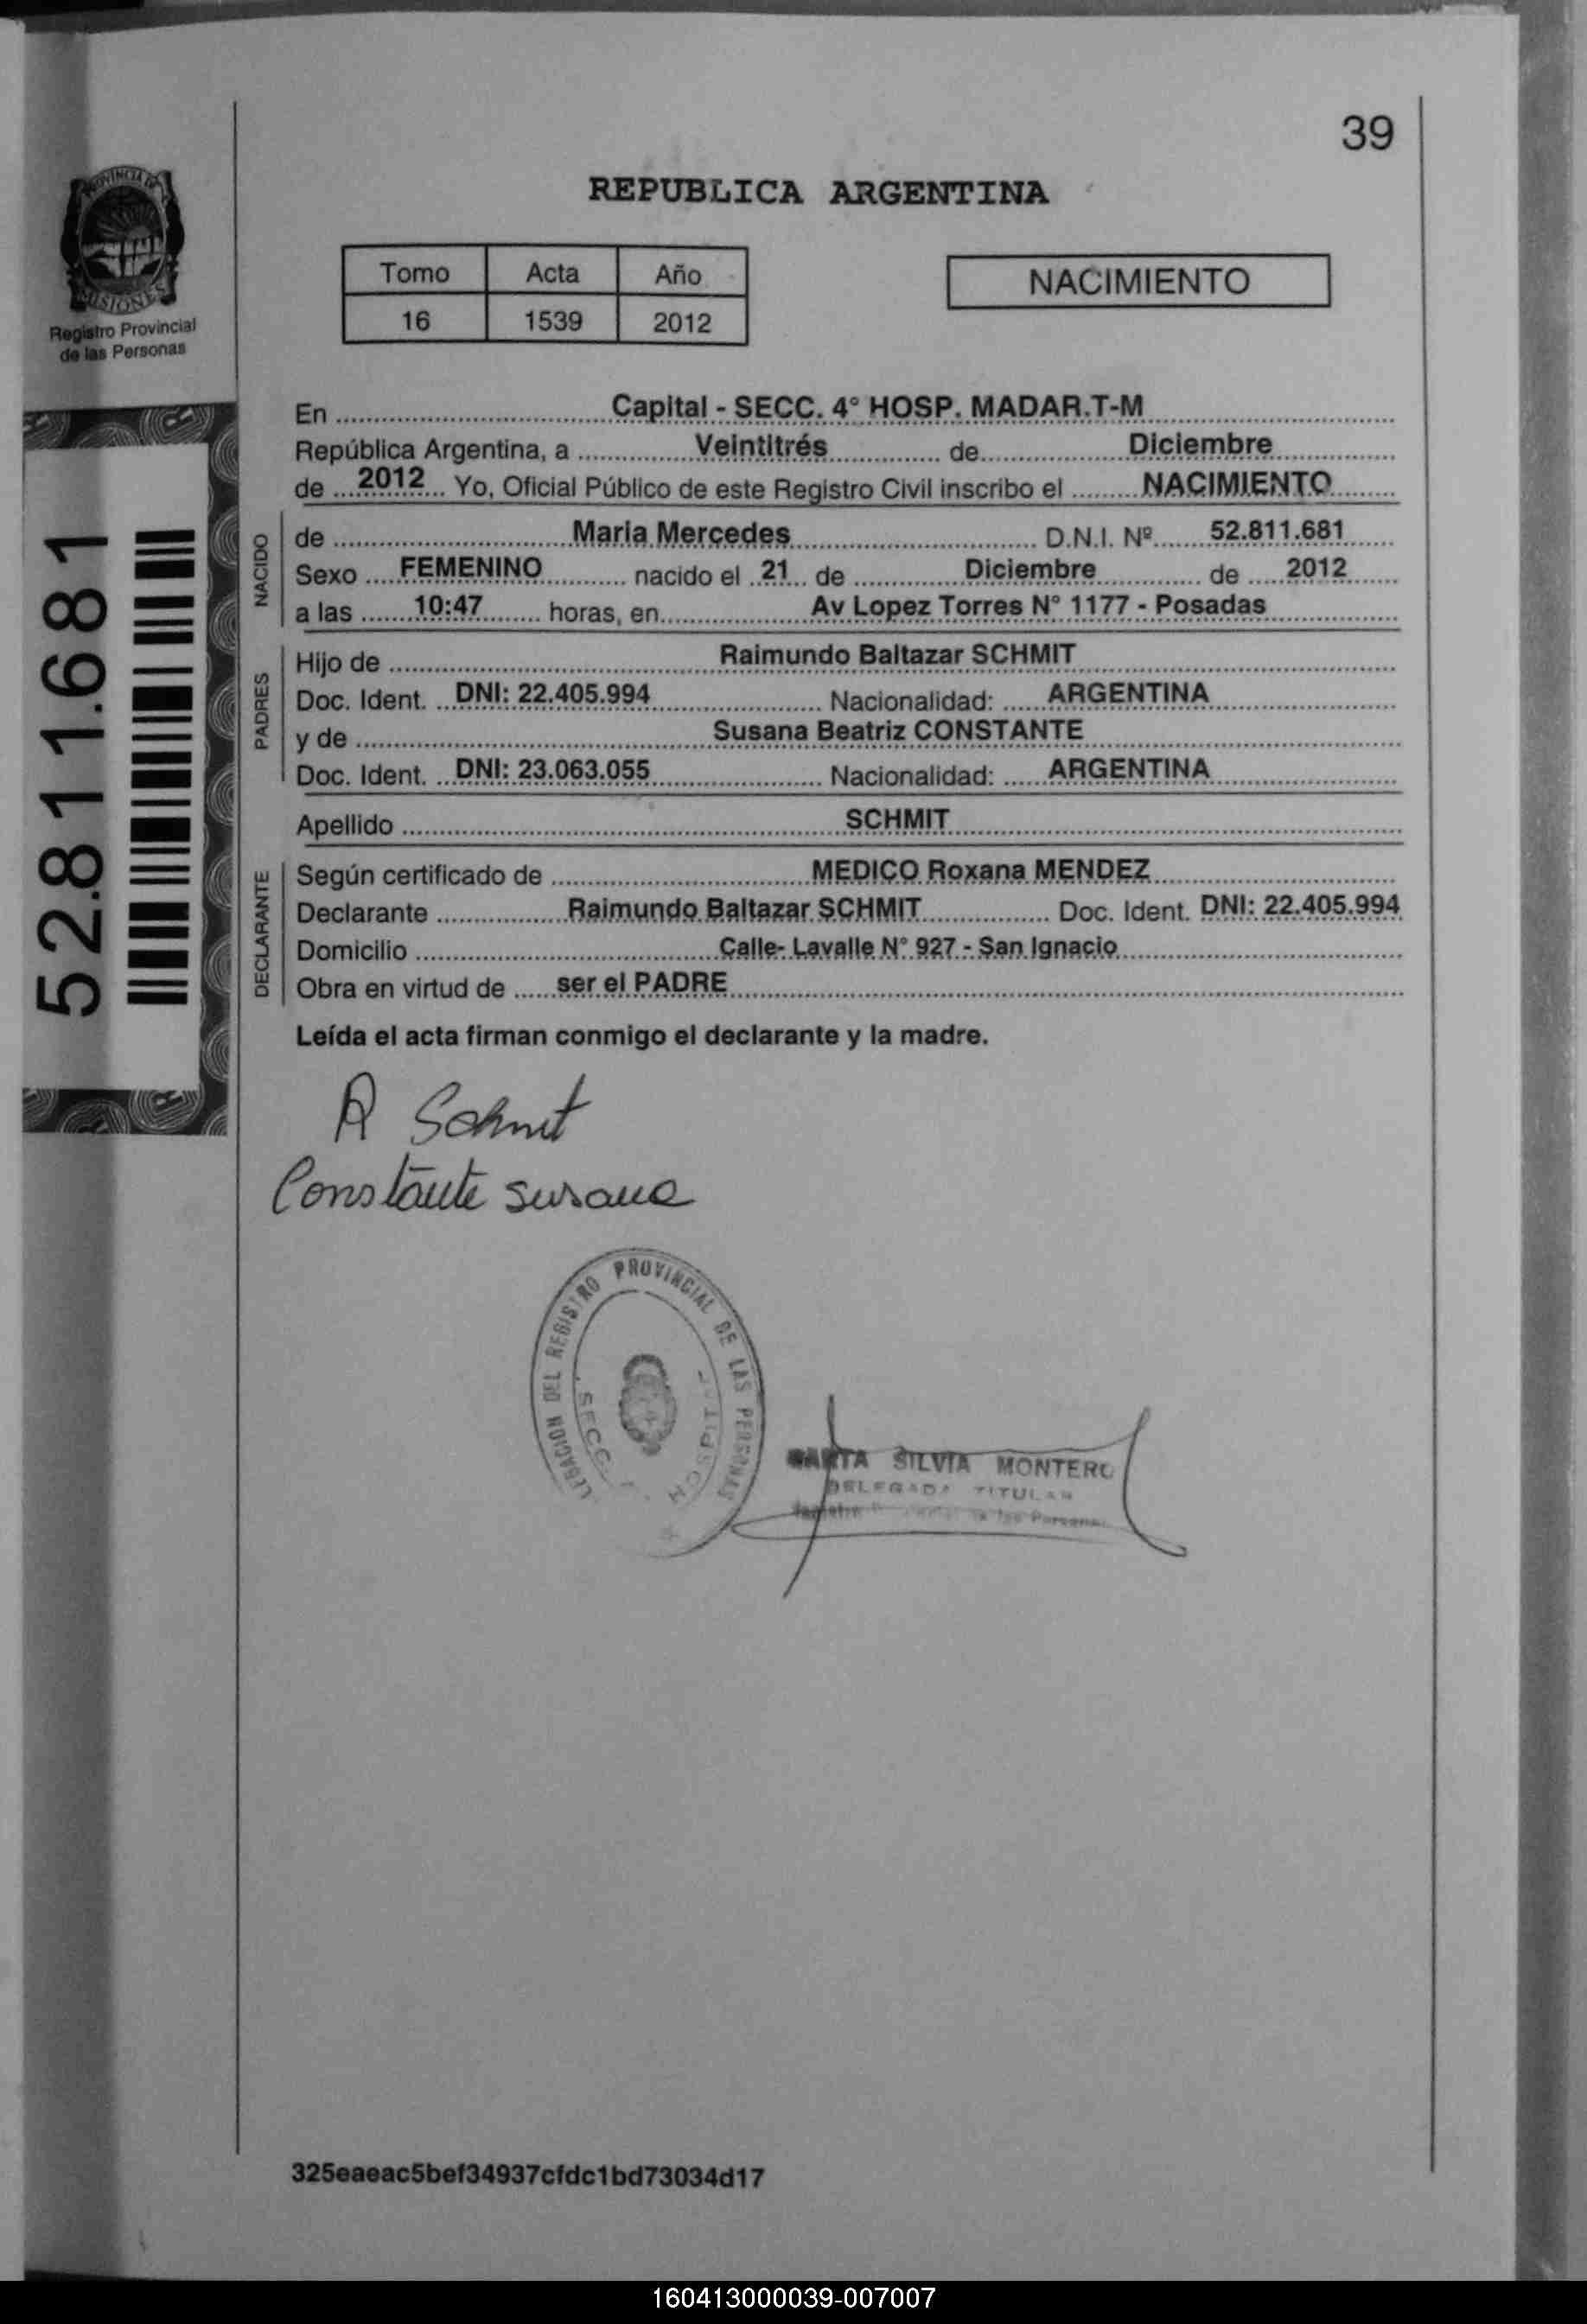 39
PROVINCIA DE
MISIONES
Registro Provincial
de las Personas
REPUBLICA ARGENTINA
Tomo Acta Año
16 1539 2012
NACIMIENTO
52.811.681
En Capital - SECC. 4° HOSP. MADAR.T-M
República Argentina, a Veintitrés de Diciembre
de 2012 Yo, Oficial Público de este Registro Civil inscribo el NACIMIENTO
NACIDO
de Maria Mercedes D.N.I. Nº 52.811.681
Sexo FEMENINO nacido el 21 de Diciembre de 2012
a las 10:47 horas, en Av Lopez Torres N° 1177 - Posadas
PADRES
Hijo de Raimundo Baltazar SCHMIT
Doc. Ident. DNI: 22.405.994 Nacionalidad: ARGENTINA
y de Susana Beatriz CONSTANTE
Doc. Ident. DNI: 23.063.055 Nacionalidad: ARGENTINA
Apellido SCHMIT
DECLARANTE
Según certificado de MEDICO Roxana MENDEZ
Declarante Raimundo Baltazar SCHMIT Doc. Ident. DNI: 22.405.994
Domicilio Calle- Lavalle N° 927 - San Ignacio
Obra en virtud de ser el PADRE
Leída el acta firman conmigo el declarante y la madre.
R Schmit
Constante Susana
DEL REGISTRO PROVINCIAL DE LAS PERSONAS
SECC. HOSPITAL
SILVIA MONTERO
DELEGADA TITULAR
de las Personas
325eaeac5bef34937cfdc1bd73034d17
160413000039-007007